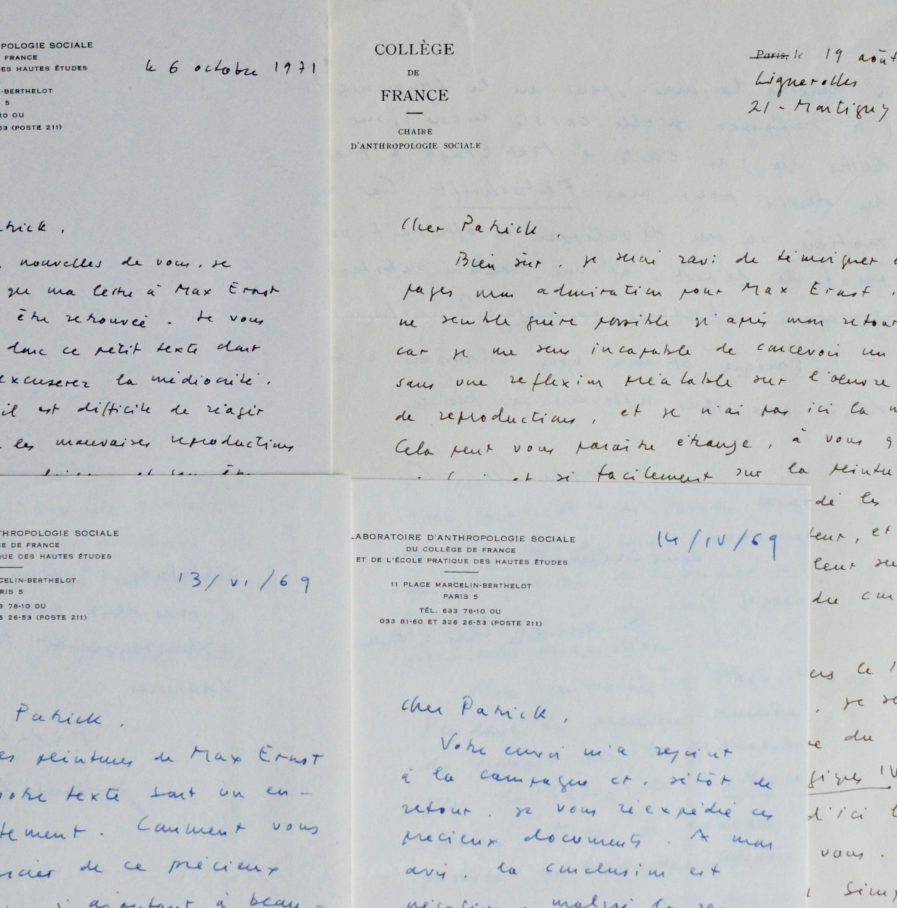 OPOLOGIE SOCIALE
FRANCE
ES HAUTES ÉTUDES
-BERTHELOT
5
10 OU
53 (POSTE 211)
le 6 octobre 1971
trick,
nouvelles de vous. Je
que ma lettre à Max Ernst
être retrouvée. Je vous
donc ce petit texte dont
excuserez la médiocrité.
il est difficile de réagir
les mauvaises reproductions
COLLÈGE
DE
FRANCE
CHAIRE
D'ANTHROPOLOGIE SOCIALE
Paris, le 19 août
Lignerolles
21 - Montigny
Cher Patrick,
Bien sûr, je serai ravi de témoigner
pages mon admiration pour Max Ernst.
ne semble guère possible qu'après mon retour
car je me sens incapable de concevoir un
sans une réflexion préalable sur l'oeuvre
de reproductions, et je n'ai pas ici la
Cela peut vous paraître étrange, à vous
si facilement sur la peintu
dé les
teur, et
leur su
du
ers le
je se
e du
gines IV
d'ici
vous.
simp
NTHROPOLOGIE SOCIALE
GE DE FRANCE
QUE DES HAUTES ÉTUDES
CELIN-BERTHELOT
RIS 5
3 78-10 OU
6 26-53 (POSTE 211)
13/VI/69
Patrick,
es peintures de Max Ernst
votre texte sont un en-
tement. Comment vous
cier de ce précieux
ajoutant à beau-
LABORATOIRE D'ANTHROPOLOGIE SOCIALE
DU COLLÈGE DE FRANCE
ET DE L'ÉCOLE PRATIQUE DES HAUTES ÉTUDES
11 PLACE MARCELIN-BERTHELOT
PARIS 5
TÉL. 633 78-10 OU
033 81-60 ET 326 26-53 (POSTE 211)
14/IV/69
Cher Patrick,
Votre envoi m'a rejoint
à la campagne et, sitôt de
retour, je vous réexpédie ces
précieux documents. A mon
avis, la conclusion est
négative, malgré la re